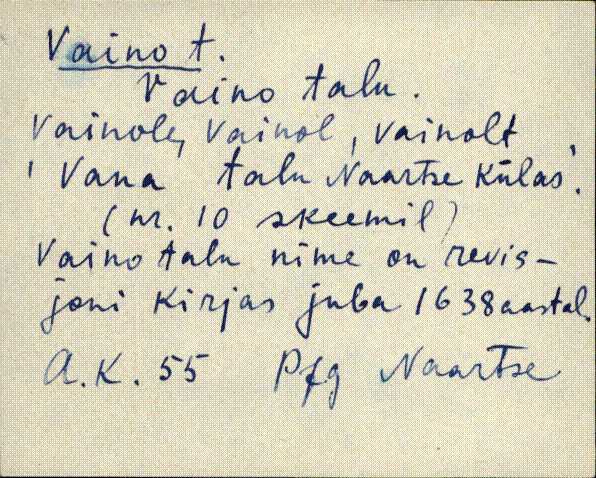 Vaino t.
Vaino talu.
Vainole, Vainol, Vainolt
'Vana talu Naartse külas'.
(nr. 10 skeemil)
Vaino talu nime on revis-
joni kirjas juba 1638 aastal.
A.K. 55 Pfg Naartse